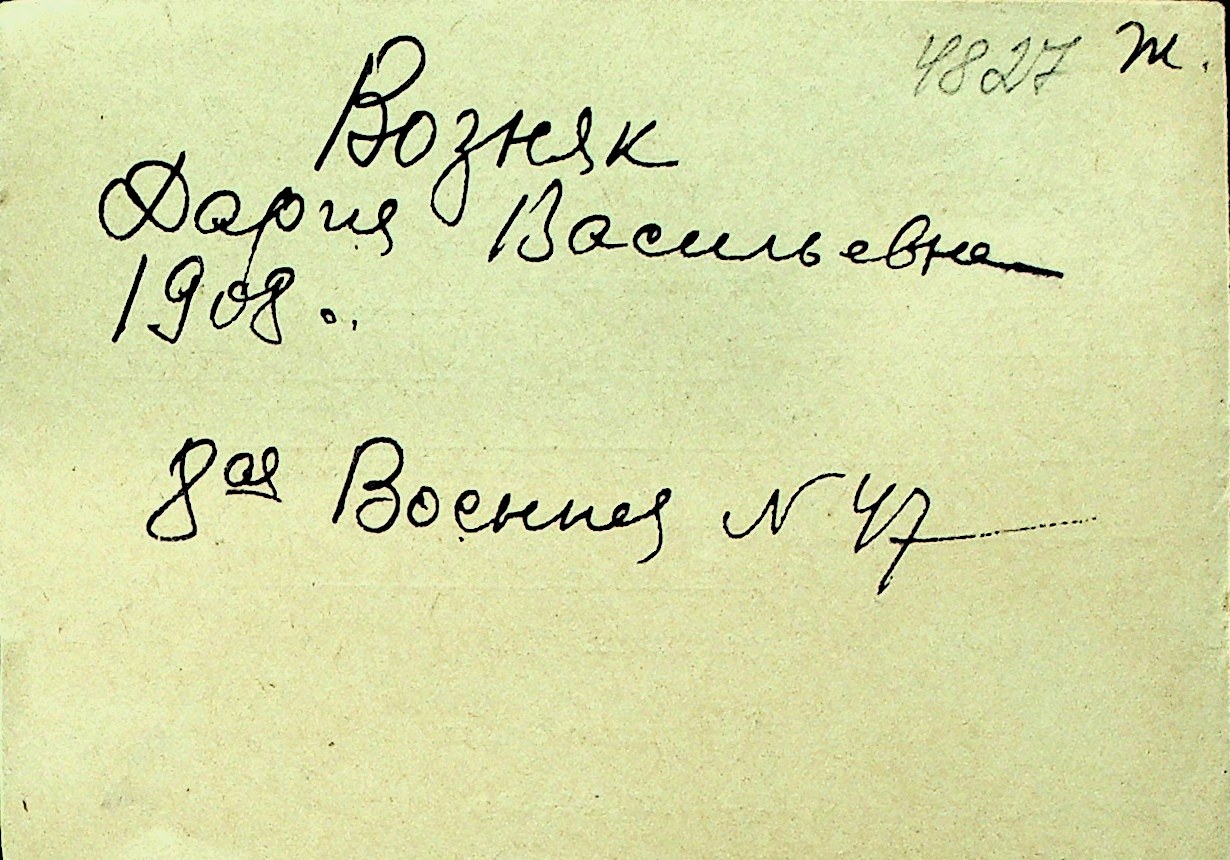 4827 Ж.
Возняк
Дария Васильевна
1908.
8ая Военная N 47